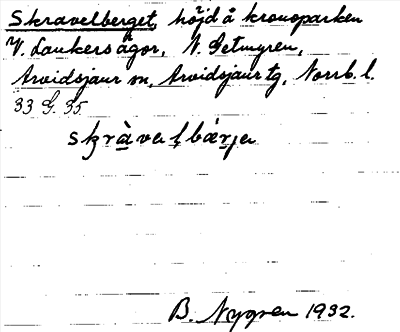 Skravelberget, höjd å kronoparken
V. Laukersågor, N. Getmyren,
Arvidsjaur sn, Arvidsjaur tg, Norrb. l.
33 G. 35
skràvelbærje
B. Nygren 1932.